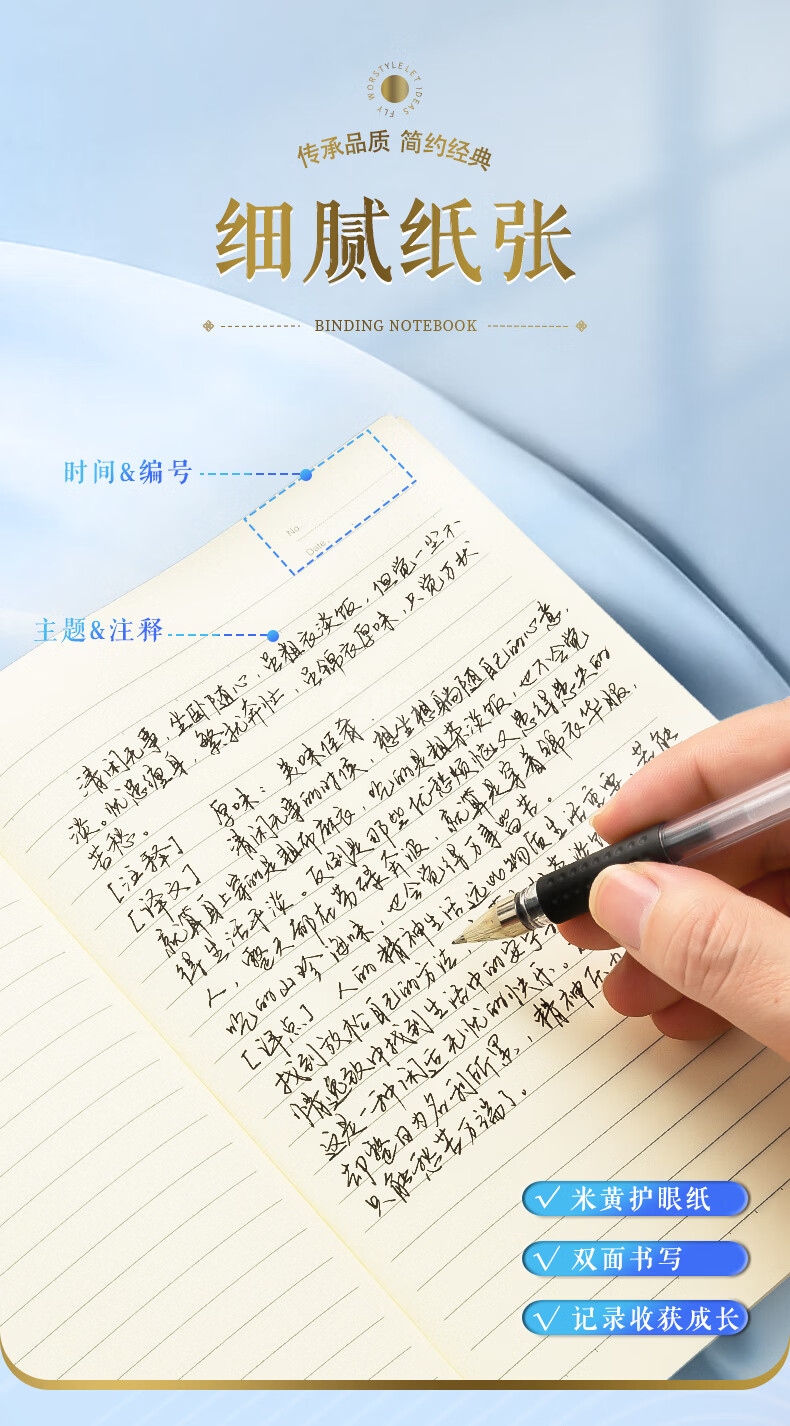 WORSTYLELET IDEAS FLY
传承品质 简约经典
细腻纸张
BINDING NOTEBOOK
时间&编号
No.
Date.
主题&注释
清闲无事，坐卧随心，虽粗衣淡饭，但觉一尘不
淡。忧患缠身，繁扰奔忙，虽锦衣厚味，只觉万状
苦愁。
[注释] 厚味：美味佳肴
[译文] 清闲无事的时候，想坐想躺随自己的心意，
就算身上穿的是粗布麻衣，吃的是粗茶淡饭，也不会觉
得生活平淡。反倒是那些忧愁烦恼又患得患失的
人，整天都在劳碌奔波，就算是穿着锦衣华服，
吃的山珍海味 也会觉得万事留苦。
[评点] 人的精神生活远比物质生活重要
找到放松自己的方法，
情逸致中找到生活中的安宁
这是一种闲适无忧的快乐。
却整日为名利所累，精神
只能愁苦万端了。
米黄护眼纸
双面书写
记录收获成长